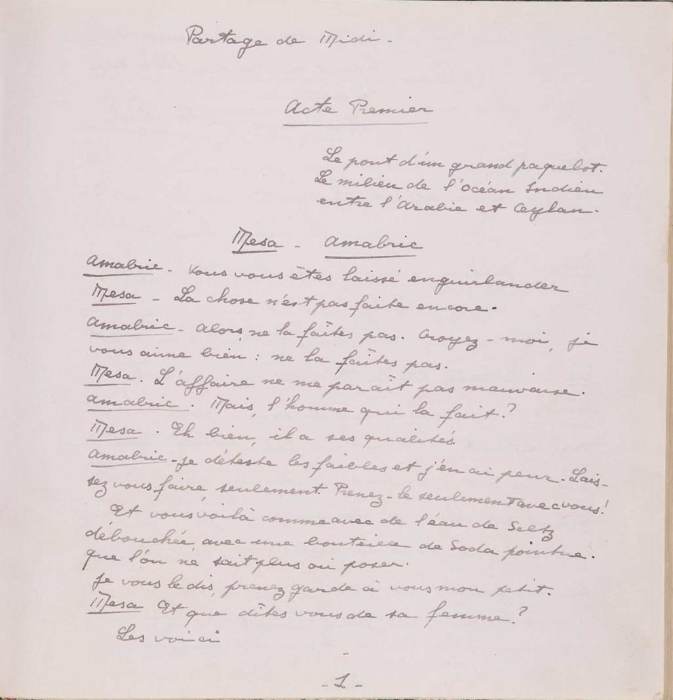 Partage de Midi -
Acte Premier
Le pont d'un grand paquebot.
Le milieu de l'Océan Indien
entre l'Arabie et Ceylan.
Mesa - Amalric
Amalric - Vous vous êtes laissé enguirlander
Mesa - La chose n'est pas faite encore.
Amalric - Alors, ne la faîtes pas. Croyez-moi, je
vous aime bien : ne la faîtes pas.
Mesa. L'affaire ne me paraît pas mauvaise.
Amalric. Mais, l'homme qui la fait?
Mesa. Eh bien, il a ses qualités
Amalric - je déteste les faibles et j'en ai peur. Lais-
sez vous faire seulement. Prenez-le seulement avec vous!
Et vous voilà comme avec de l'eau de Seltz
débouchée avec une bouteille de Soda pointue.
que l'on ne sait plus où poser.
je vous le dis, prenez garde à vous mon petit.
Mesa Et que dîtes vous de sa femme?
Les voici
- 1 -